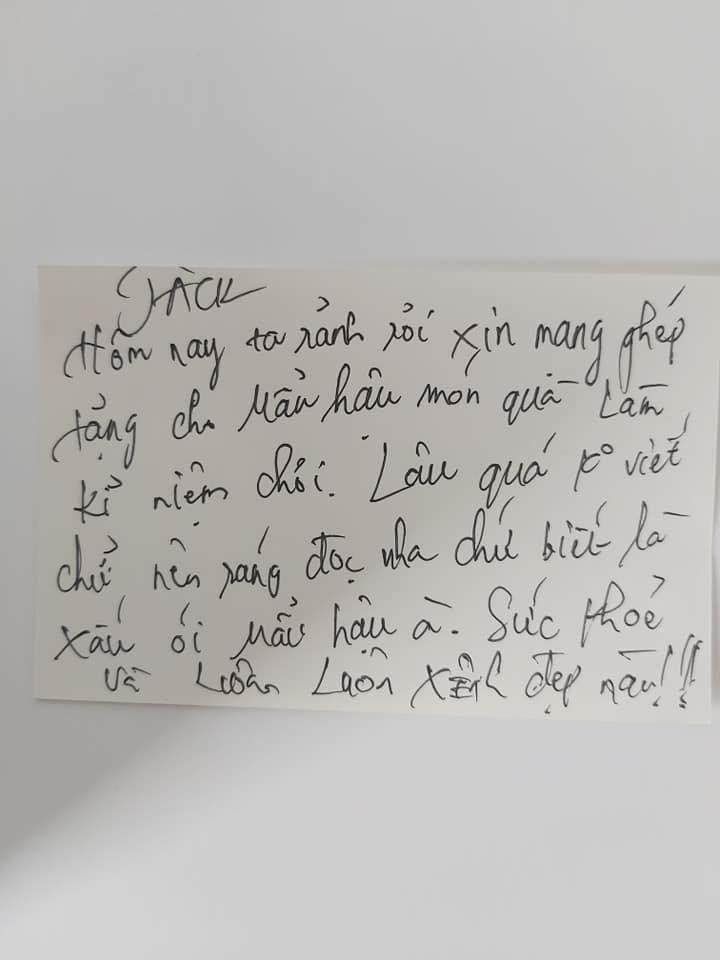 JACK
Hôm nay ta rảnh rỗi xin mang ghép
tặng cho Mẫu hậu món quà làm
kỉ niệm chơi. Lâu quá ko viết
chữ nên ráng đọc nha chứ biết là
xấu ói Mẫu hậu à. Sức khoẻ
và Luôn Luôn xinh đẹp nàu!!!